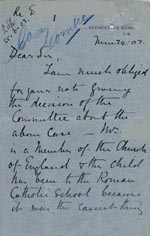 Re E
Dear Sir,
I am much obliged
for your note giving
the decision of the
Committee about the
above case — Mrs.
is a Member of the Church
of England & the Child
has been to the Roman
Catholic School because
it was the easiest thing